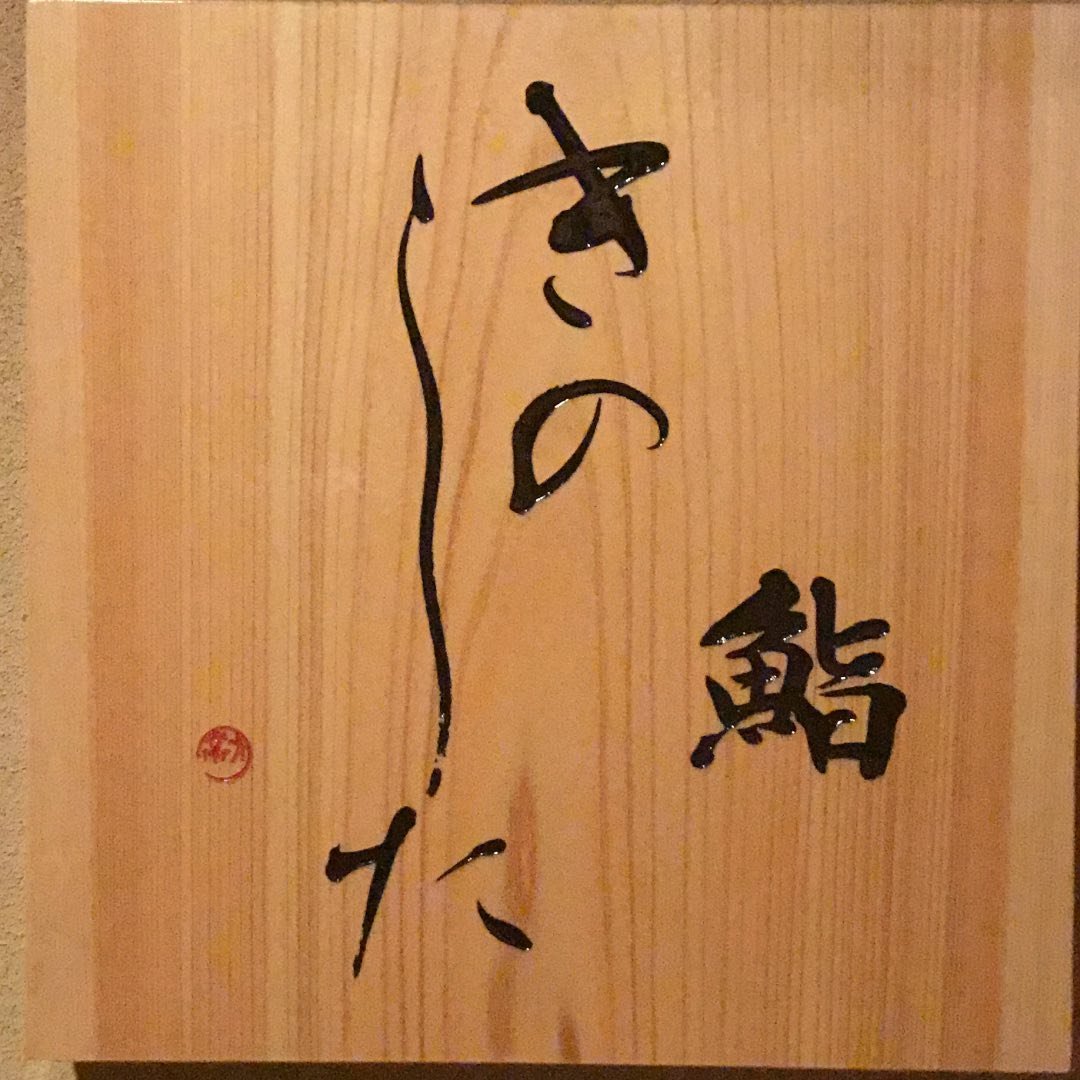 鮨
きの
した